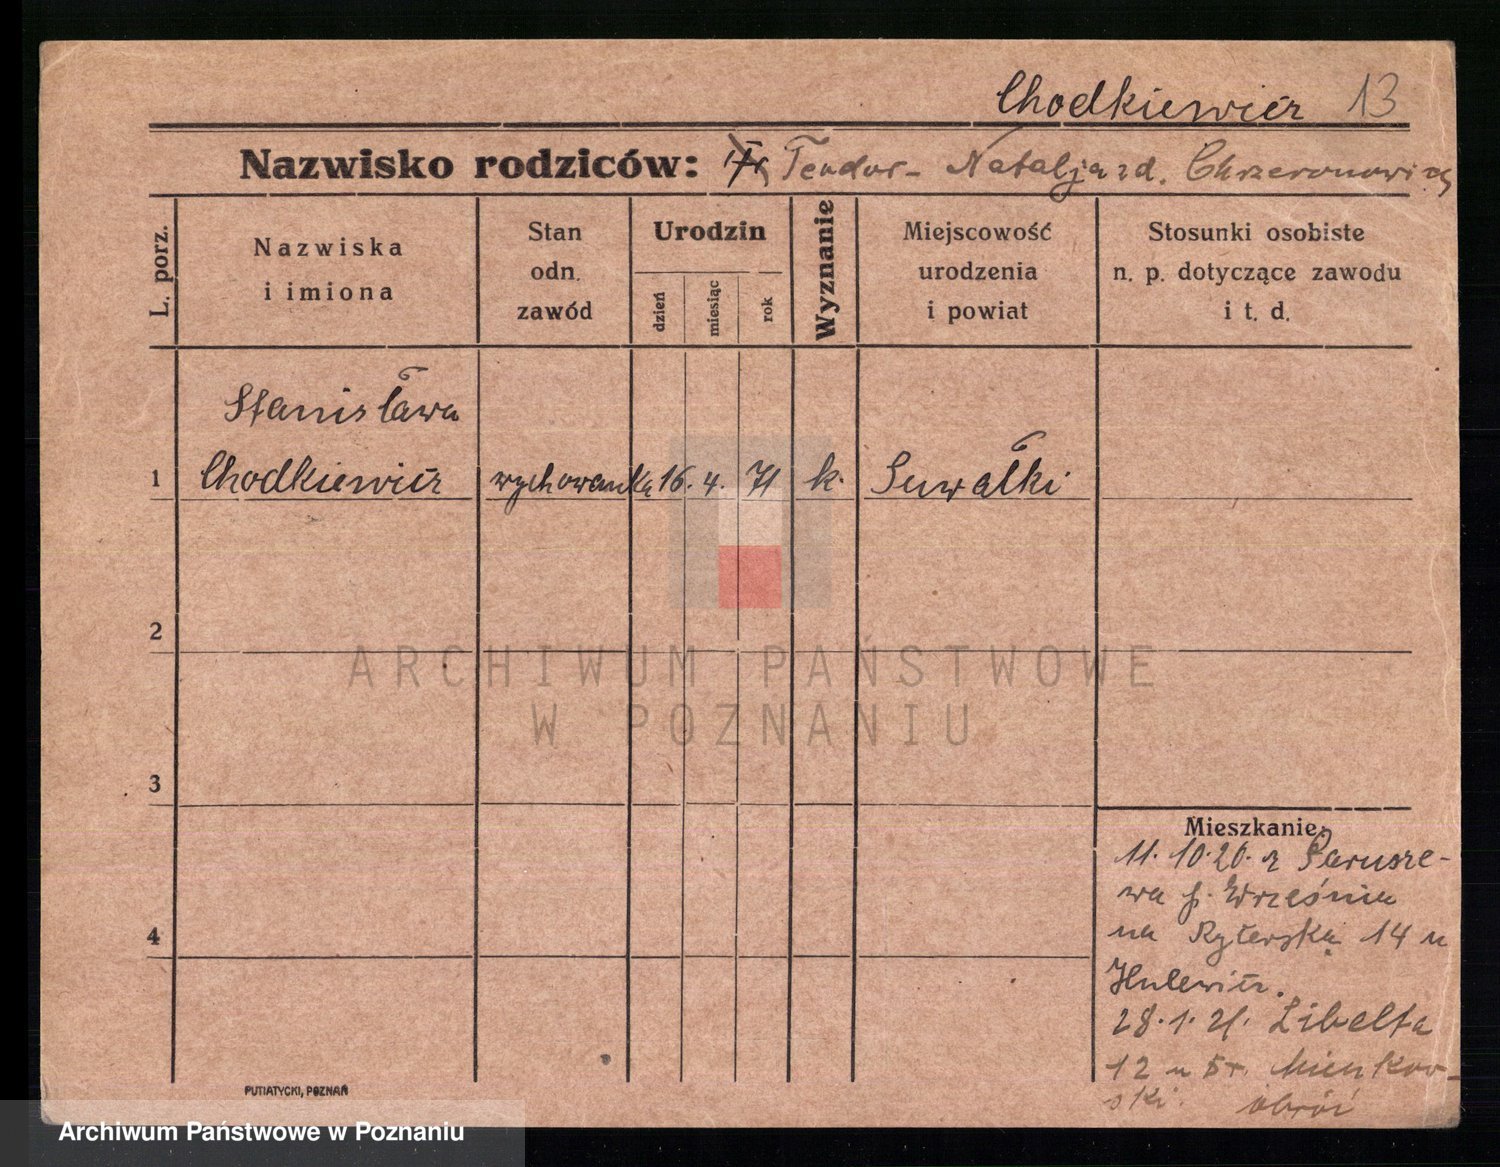 Chodkiewicz 13
Nazwisko rodziców: Teodor - Natalja zd. Chrzeronowicz
L. porz.
Nazwiska
i imiona
Stan
odn.
zawód
Urodzin
dzień
miesiąc
rok
Wyznanie
Miejscowość
urodzenia
i powiat
Stosunki osobiste
n. p. dotyczące zawodu
i t. d.
Stanisława
1 Chodkiewicz wychowanka 16. 4. 71 k. Suwałki
2
3
4
Mieszkanie:
11. 10. 20. z Parusze-
wa p. Września
na Ryterską 14 u
Hulewicz.
28. 1. 21. Libelta
12 u
obróć
PUTIATYCKI, POZNAŃ
ARCHIWUM PAŃSTWOWE
W POZNANIU
Archiwum Państwowe w Poznaniu